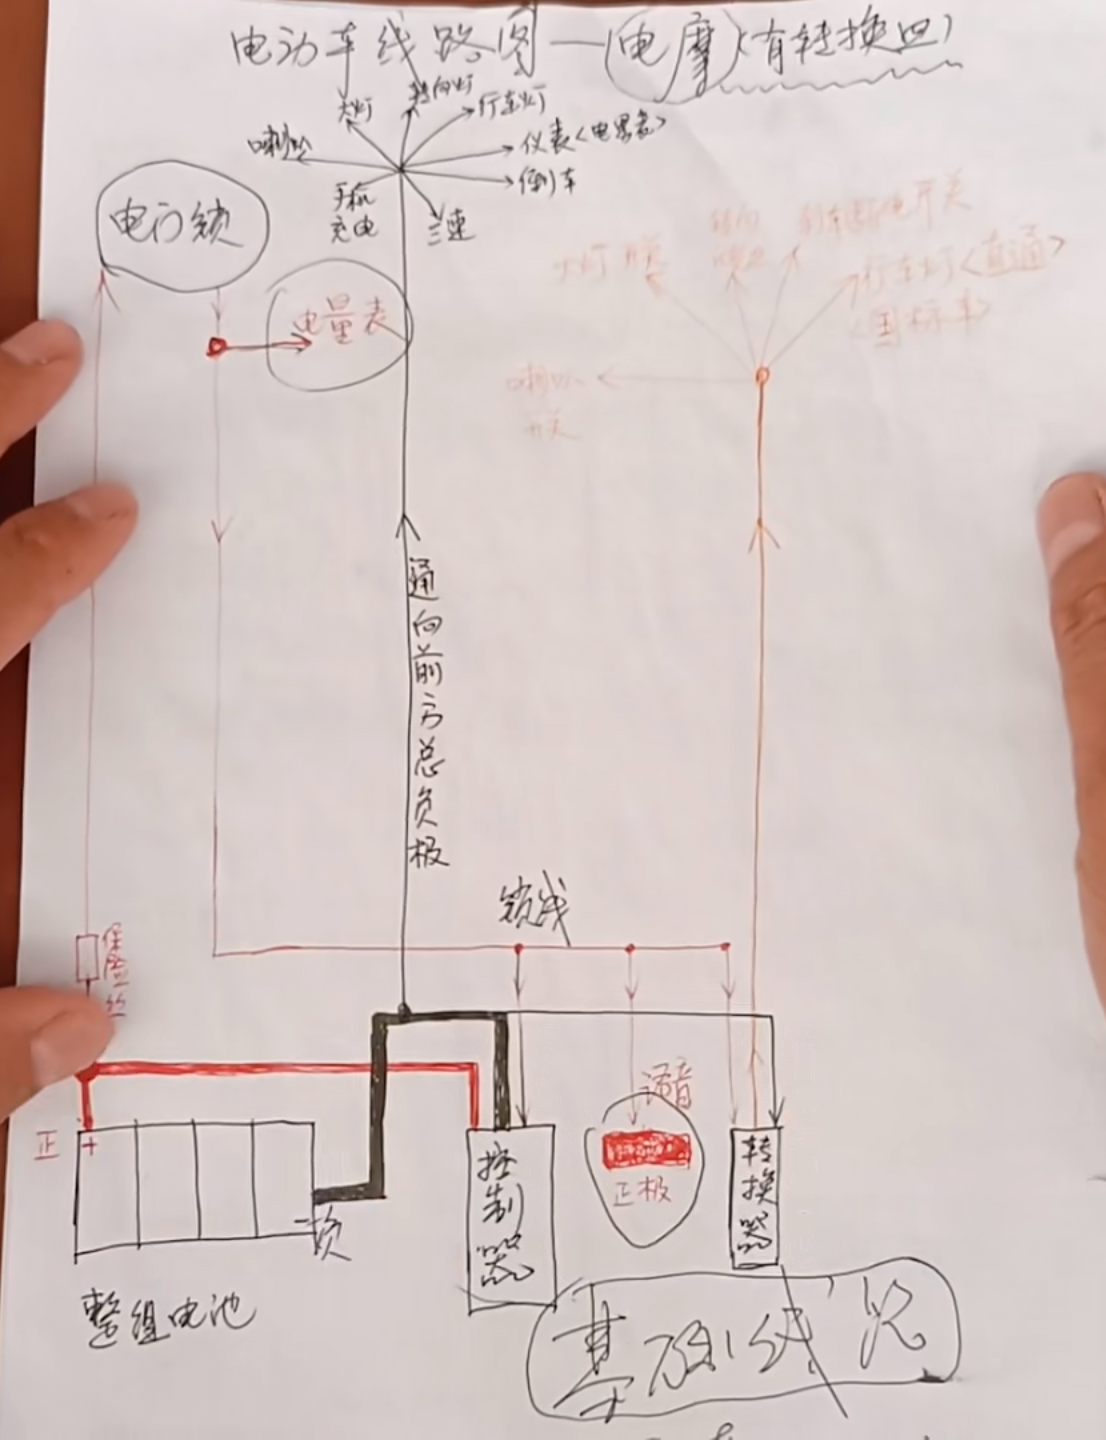 电动车线路图—电摩(有转换四)
大灯
转向灯
行车灯
喇叭
仪表<电量表>
倒车
手机
充电
三速
电门锁
电量表
大灯开关
转向
刹车断电开关
行车灯<直通>
<国标车>
喇叭
开关
通向前方总负极
锁线
保险丝
语音
正 +
正极
控制器
转换器
一负
整组电池
基础线